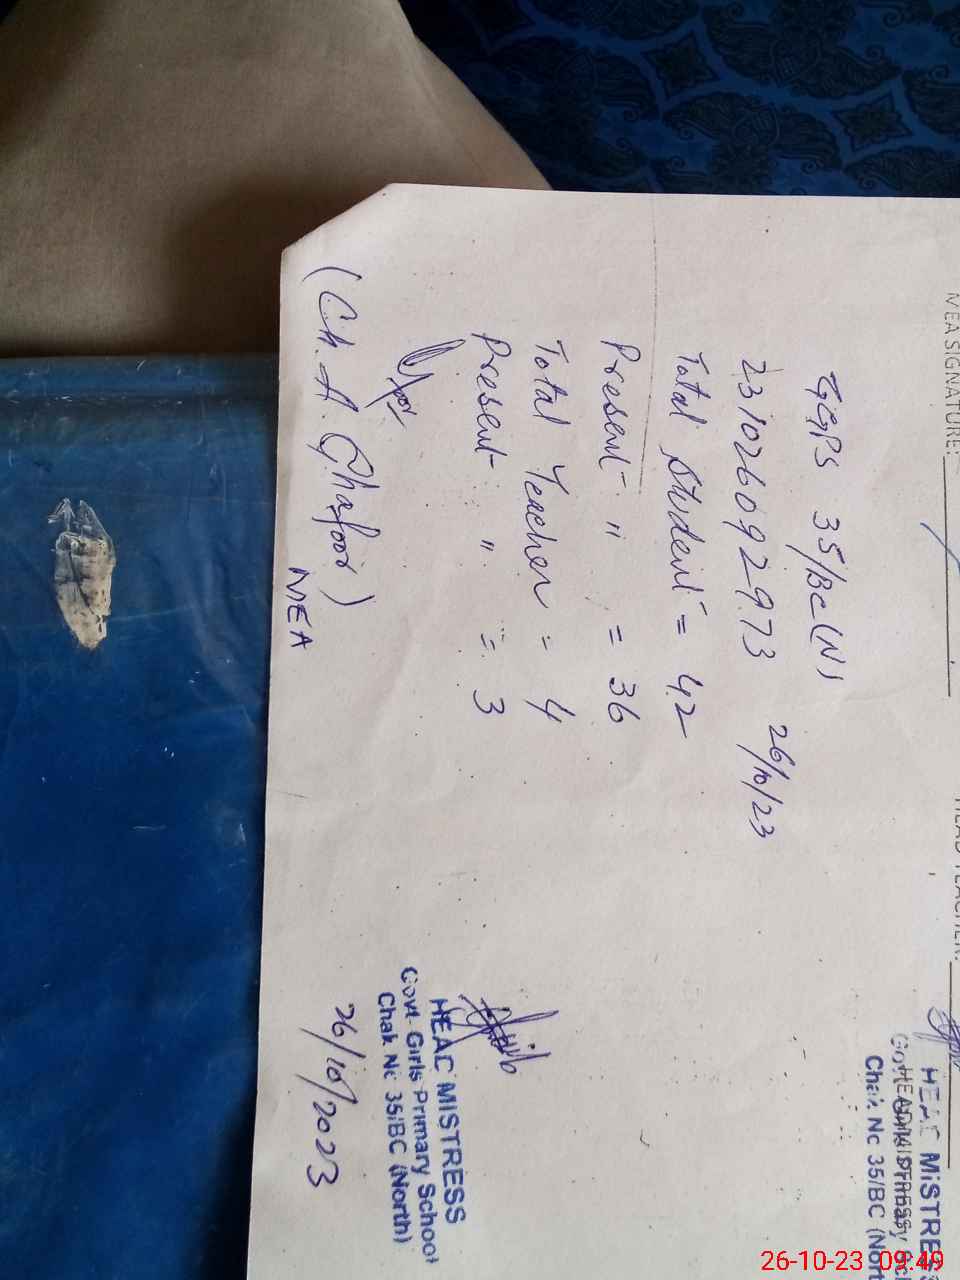 MEA SIGNATURE:
HEAD TEACHER:
HEAD MISTRESS
Chak Nc 35/BC (Nor
GGPS 35/BC(N)
231026092973 26/10/23
Total Student = 42
Present " = 36
Total Teacher = 4
Present " = 3
(Ch. A Ghafoor)
MEA
HEAD MISTRESS
Govt. Girls Primary School
Chak Nc 35/BC (North)
26/10/2023
26-10-23 09:49